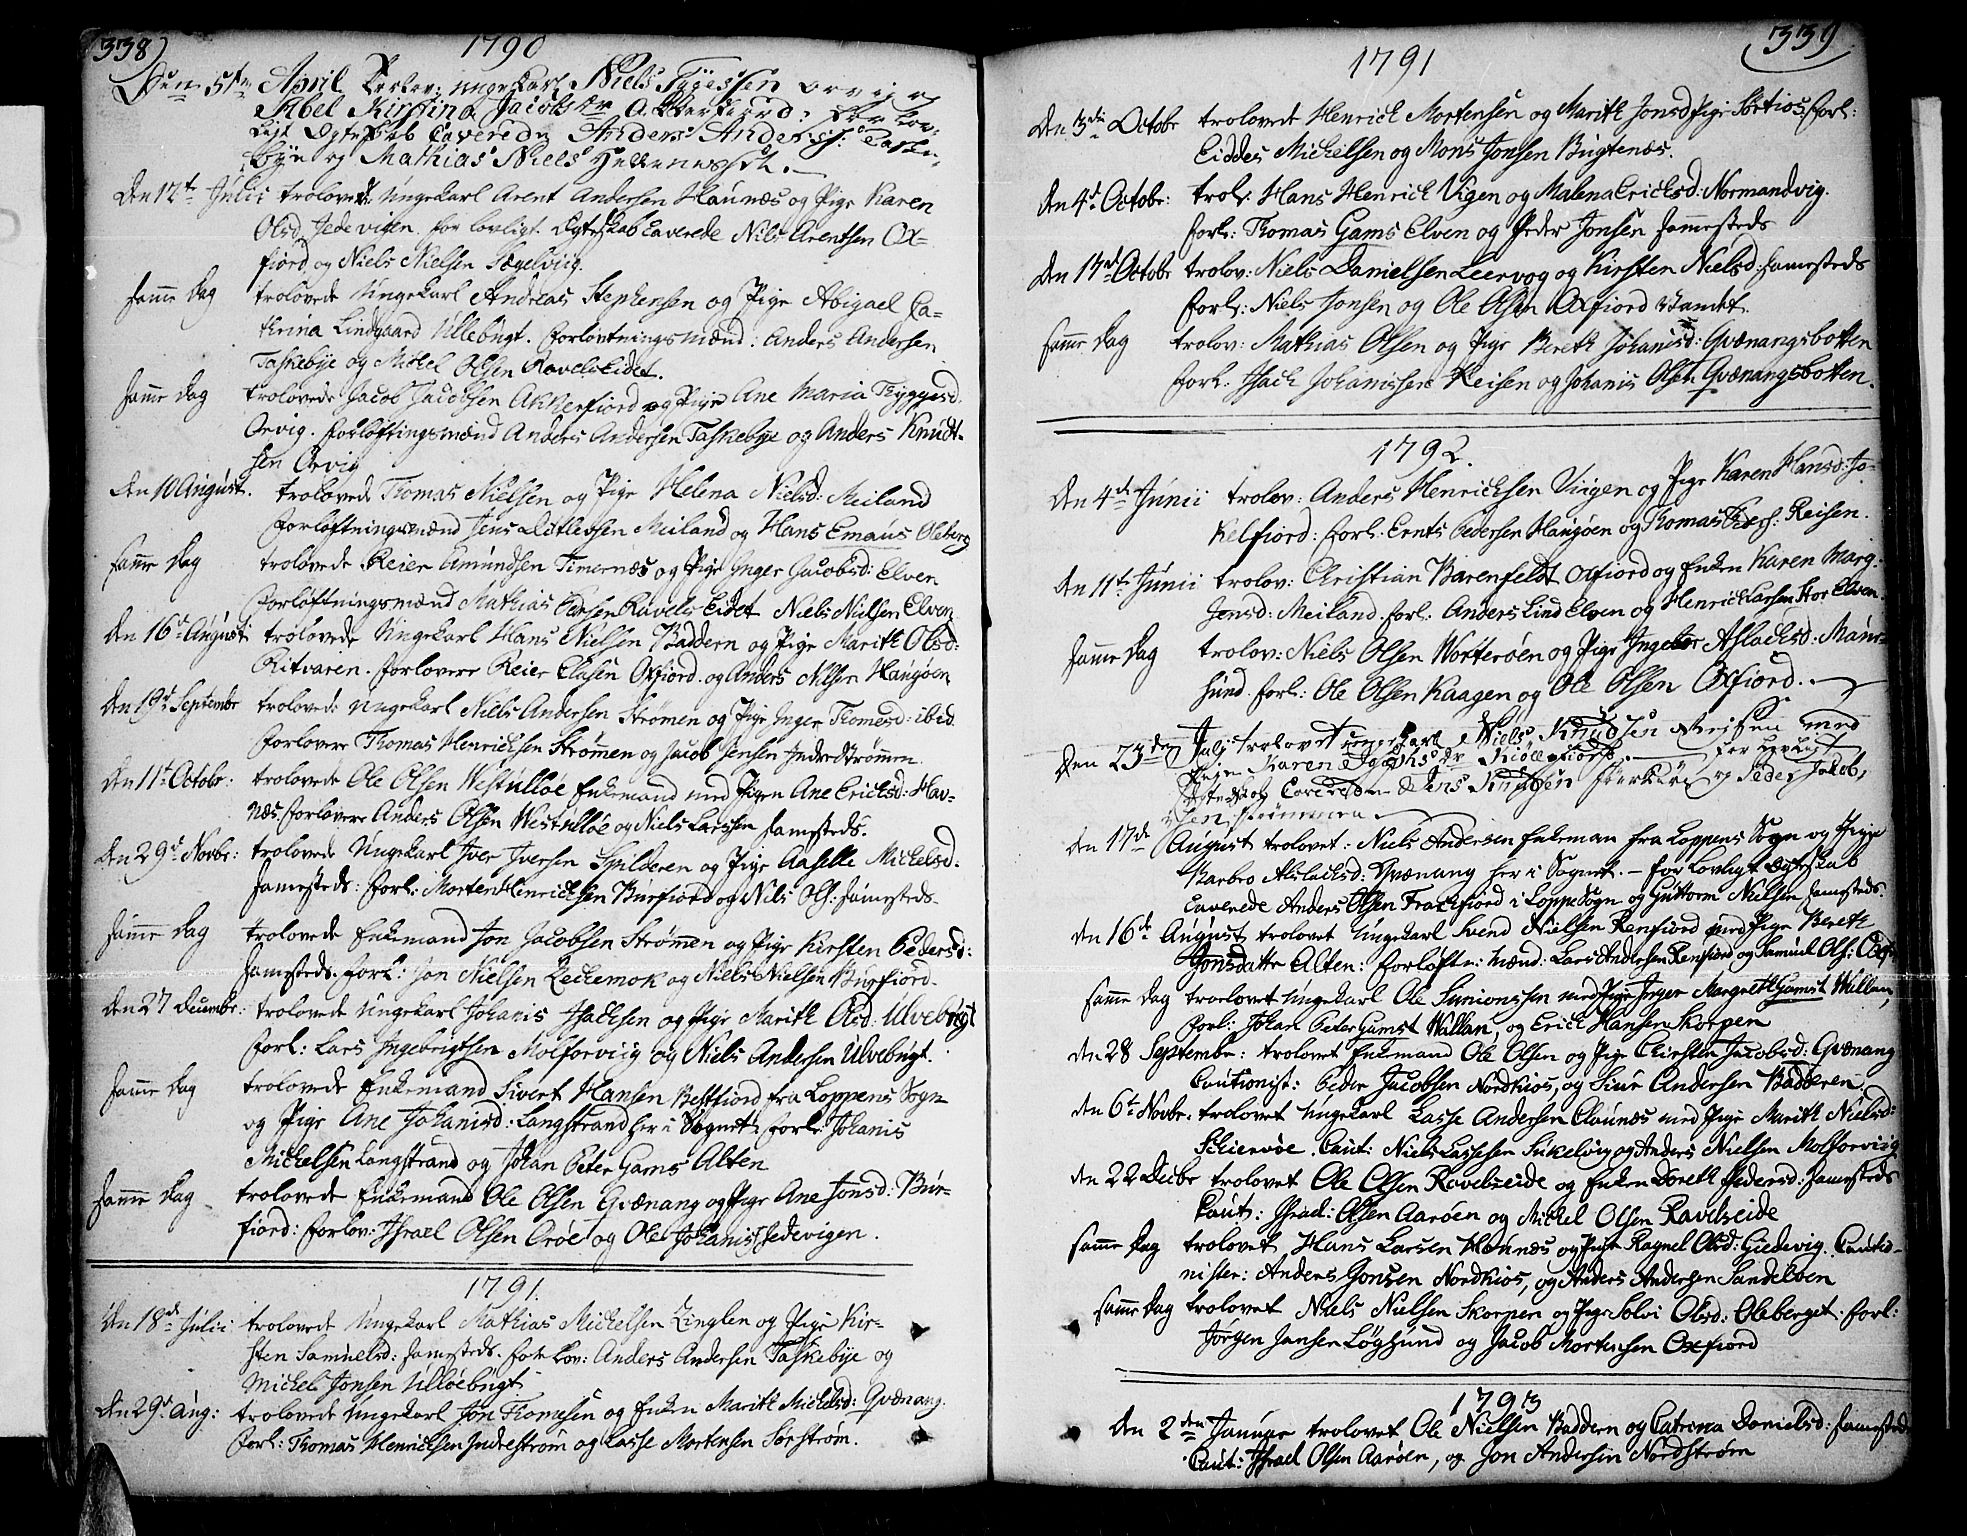 338)
1790
Den 5te April trolov: ungekarl Niels Orvig og
Sibel Kirstina Jacobsdr Akkerfiord: for lov-
ligt Ægteskab Caverede Anders Anders: Taske-
bye og Mathias Niels
Den 12te Julii trolovede Ungekarl Arent Andersen Haünæs og Pige Karen
Olsd Jedevigen. for lovligt Ægteskab Caverede Nils Arentsen Ox-
fiord, og Niels Nielsen
samme Dag trolovede Ungekarl Andreas Stephensen og Pige Abigael Ca-
thrina Lindgaard Ulleбügt. forløvtningsmænd: Anders Andersen
Taskebye og Mickel Olsen Ravelseidet.
samme Dag trolovede Jacob Jacobsen Akkerfiord og Pige Ane Maria Tryggesd.
Orvig. forløftningsmænd Anders Andersen Taskebye og Anders Knüdt-
sen Orvig
Den 10 August. trolovede Thomas Nielsen og Pige Helena Nielsd: Meiland
forløftningsmænd Jens Detlefsen Meiland og Hans Emaüs Oleberg
samme Dag trolovede Reier Amündsen Timernæs og Pige Inger Jacobsd: Elven
forløftningsmænd Mathias Ravels Eidet Niels Nielsen Elven
Den 16d Augüsti trolovede Ungekarl Hans Nielsen Baddern og Pige Marith Olsd:
Ritvaren. forlovere Reier Clasen Oxfiord. og Anders Nilsen Haügøen
Den 19d Septembr trolovede Ungekarl Niels Andersen Strømen og Pige Inger Thomesd: ibid.
forlovere Thomas Henricksen Strømmen og Jacob Jensen Indre Strømmen
Den 11t Octobr: trolovede Ole Olsen Westülløe Enkemand med Pigen Ane Ericksd: Hav-
næs. forlovere Anders Olsen Westülløe og Niels Larssen samesteds.
Den 29d Novbr: trolovede Ungekarl Iver Iversen Spilderen og Pige Aaselle Mickelsd.
samesteds: forl: Morten Henricksen Bürfiord og Nils Ols: samesteds.
samme Dag trolovede Enkemand Jon Jacobsen Strømen og Pige Kirsten Pedersd:
samesteds. forl: Jon Nielsen Leckemok og Niels Nielsen Bürfiord.
Den 27 Decembr: trolovede Ungekarl Johanis Isachsen og Pige Marith Olsd: Ulvebügt
forl: Lars Ingebrigtsen Molforviig og Niels Andersen Ulvebügt.
samme Dag trolovede Enkemand Sivert Hansen Bestfiord fra Loppens Sogn
og Pige Ane Johanisd: Langstrand her i Sognet: forl: Johanis
Mickelsen Langstrand og Johan Peter Gams Alten
samme Dag trolovede Enkemand Ole Olsen Qvænang og Pige Ane Jonsd: Bür-
fiord: forlov: Israel Olsen Orøe og Ole Johanis: Jedevigen.
1791.
Den 18de Julii trolovede Ungekarl Mathias Mickelsen Zinglen og Pige Kir-
sten Samuelsd: samesteds. forlov: Anders Andersen Taskebye og
Mickel Jonsen Ulløebügt
Den 29d Aug: trolovede Ungekarl Jon Thomesen og Enken Marith Mickelsd: Qvænang.
forl: Thomas Henricksen Indrestrøm og Lasse Mortensen Sørstrøm.
339
1791
Den 3die Octobr trolovede Henrich Mortensen og Marith Jonsd Pige Sørkios forl:
Eiddes Mickelsen og Mons Jonsen Bügtenæs.
Den 4d Octobr: trol: Hans Henrich Vigen og Malena Ericksd: Normandvig.
forl: Thomas Gams Elven og Peder Jonsen samesteds
Den 17d Octobr trolov: Niels Danielsen Leervog og Kirsten Nielsd: samesteds
forl: Niels Jonsen og Ole Olsen Oxfiord
samme Dag trolov: Mathias Olsen og Pige Bereth Johanisd: Qvænangsbotten
forl: Isach Johanissen Reisen og Johanis Olsen Qvænangsbotten.
1792.
Den 4de Junii trolov: Anders Henricksen Vigen og Pige Karen Hansd: Jo-
kelfiord: forl: Ernts Pedersen Haügøen og Thomas Reisen.
Den 11te Junii trolov: Christian Barenfeldt Oxfiord og Enken Karen Marg:
Jensd: Meiland. forl: Anders Lind Elven og Henrick Larsen Stor Elven.
samme Dag trolov: Niels Olsen Worterøen og Pige Ingebor Aslacksd: Maür-
sünd. forl: Ole Olsen Kaagen og Ole Olsen Oxfiord.
Den 23den Julj trolovet ungekarl Niels Knudsen Reisen med
Pige Karen for lovligt
Ægteskab Caverede Jens Knudsen og Peder Jakob,
sen Strømmen
Den 17de August trolovet: Niels Andersen Enkeman fra Loppens Sogn og Pige
Barbro Aslacksd: Qvænang her i Sognet. – for Lovligt Ægteskab
Caverede Anders Olsen Frackfiord i Loppe Sogn og Güttorm Nielsen samesteds.
Den 16de August trolovet Ungekarl Svend Nielsen Renfiord med Pige Bereth
Jonsdatter Alten: forløftn: Mænd: Lars Andersen Renfiord og Samüel Ols:
samme Dag troelovet Ungekarl Ole Simonssen med Pige Inger Margreth Gamst Wallan,
forl: Johan Peter Gamst Wallan, og Erick Hansen Skorpen
Den 28 Septembr: trolovet Enkemand Ole Olsen og Pige Chirsten Jacobsd: Qvænang
Cautionist: Peder Jacobsen Nordkios, og Siür Andersen Badderen.
Den 6t Novbr: trolovet Ungekarl Lasse Andersen Claünæs med Pige Marith Nielsd:
Skiervøe. Caut: Niels Lassesen Sükelvig og Anders Nielsen Molforviig
Den 22 Decbr trolovet Ole Olsen Ravelseide og Enken Doreth Pedersd: samesteds
Caut: Israel: Olsen Aarøen og Mickel Olsen Ravelseide
samme Dag trolovet Hans Larsen Haünæs og Pige Ragnel Olsd: Giedevig. Cautio-
nister: Anders Jonsen Nordkios, og Anders Andersen Sandelven
samme Dag trolovet Niels Nielsen Skorpen og Pige Solvi Olsd: Oleberget: forl:
Jørgen Jansen Løgsund og Jacob Mortensen Oxfiord
1793
Den 2den Januar trolovet Ole Nielsen Baddern og Catrina Danielsd: samesteds
Caut: Israel Olsen Aarøen, og Jon Andersen Nordstrøm